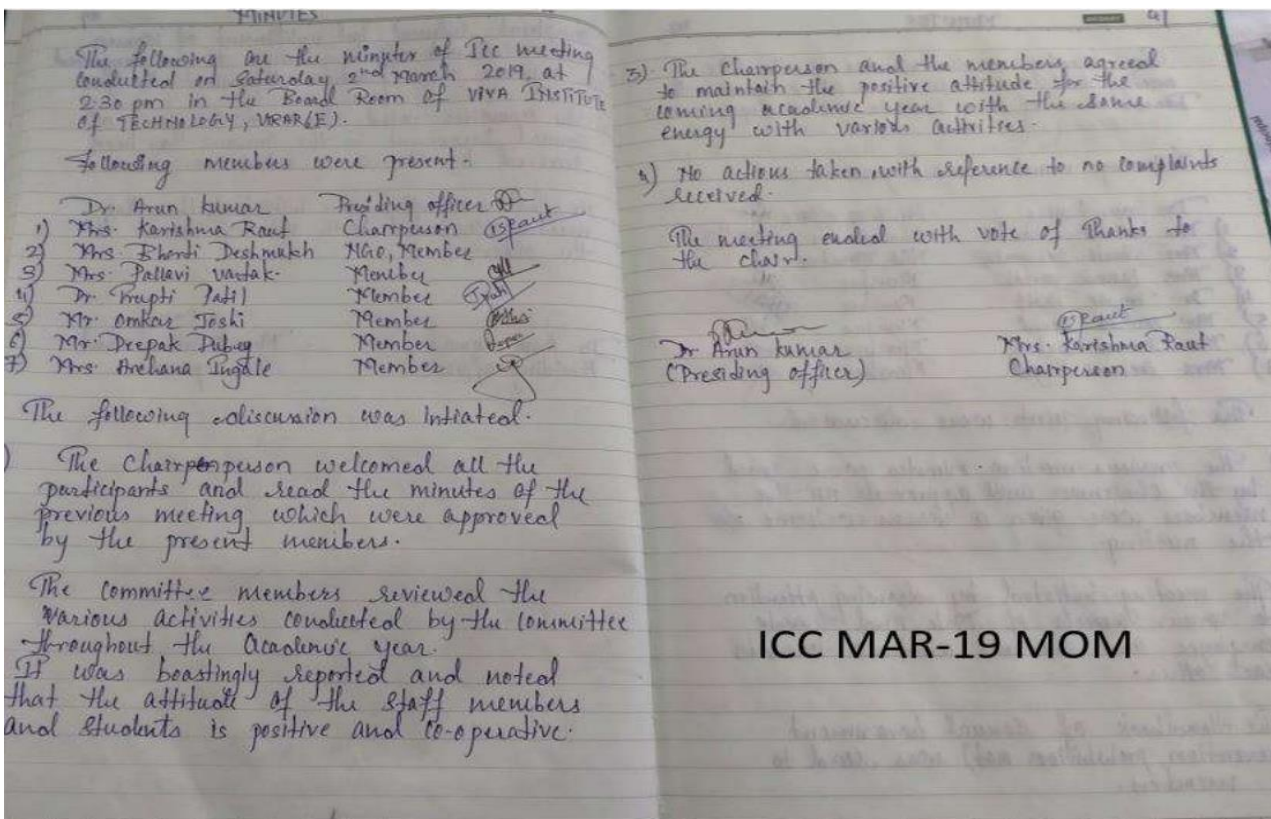 MINUTES
The following are the minuter of Icc meeting
conducted on Saturday 2nd March 2019, at
2:30 pm in the Board Room of VIVA INSTITUTE
of TECHNOLOGY, VIRAR(E).
following members were present.
Dr. Arun kumar Presiding officer
1) Mrs. Karishma Raut Chairperson KSRaut
2) Mrs. Bharti Deshmukh NGO, Member
3) Mrs. Pallavi Vartak. Member
4) Dr. Trupti Patil Member
5) Mr. Omkar Joshi Member
6) Mr. Deepak Dubey Member
7) Mrs. Archana Ingale Member
The following discussion was intiated.
) The Chairperson welcomed all the
participants and read the minutes of the
previous meeting which were approved
by the present members.
The committee members reviewed the
various activities conducted by the committee
throughout the Academic year.
It was boastingly reported and noted
that the attitude of the staff members
and students is positive and co-operative.
3) The Chairperson and the members agreed
to maintain the positive attitude for the
coming academic year with the same
energy with various activities.
4) No actions taken with reference to no complaints
received.
The meeting ended with vote of Thanks to
the chair.
KSRaut
Dr Arun kumar Mrs. Karishma Raut
(Presiding officer) Chairperson
ICC MAR-19 MOM